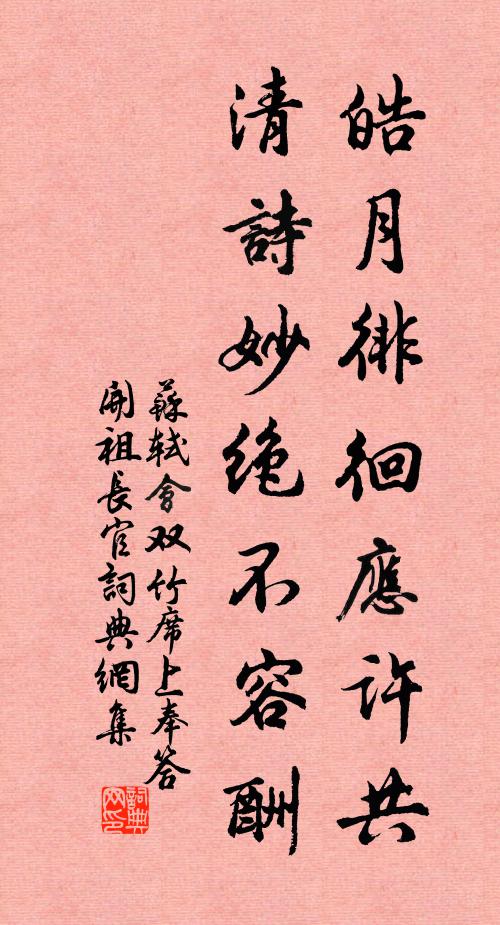 皓月徘徊應許共
清詩妙絶不容酬
蘇軾會双竹席上奉答
開祖長官詞典網集
詞典
网印